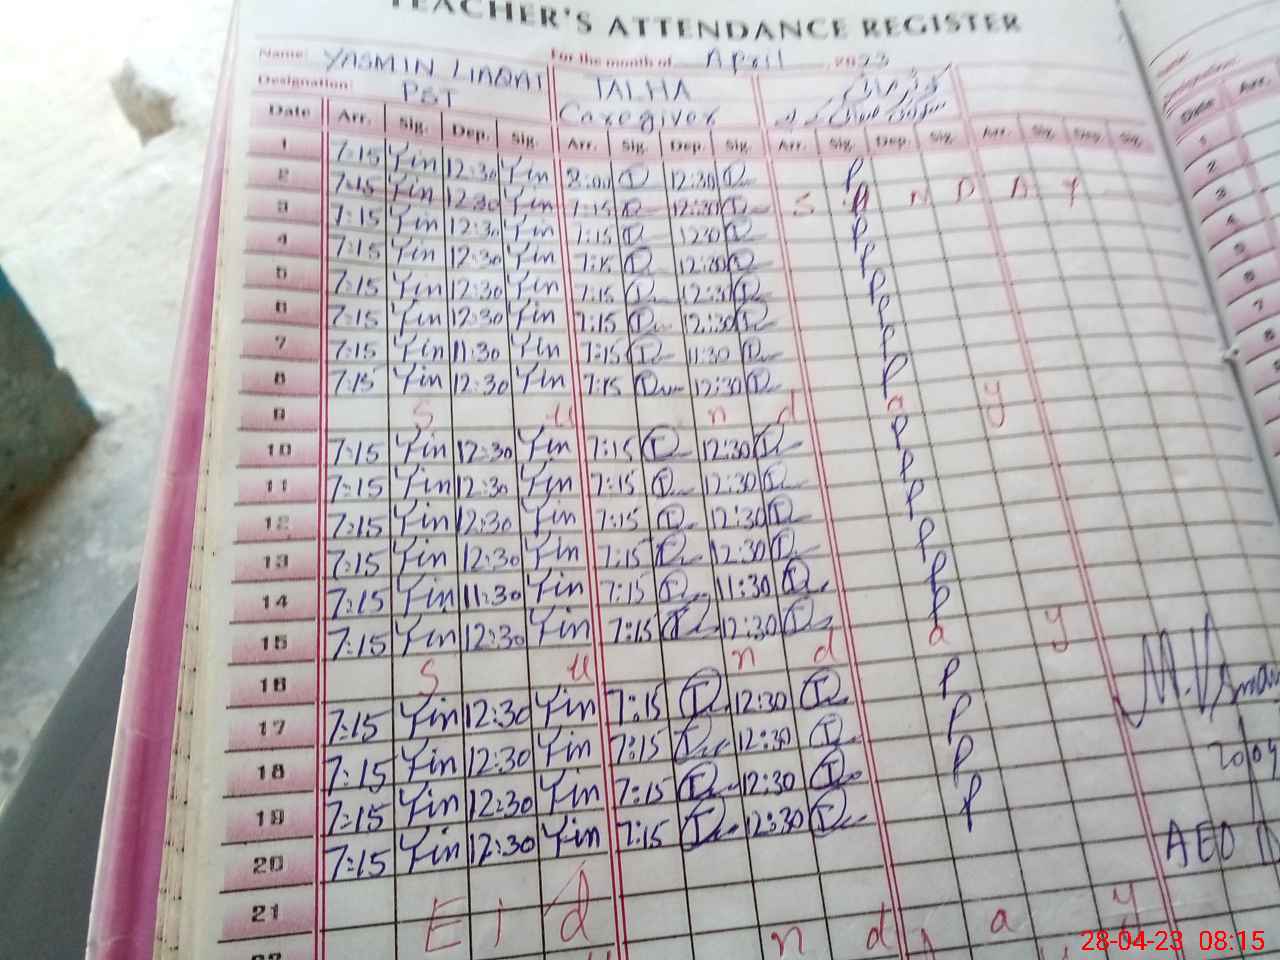 TEACHER'S ATTENDANCE REGISTER
Name: YASMIN LIAQAT For the month of April 2023
Designation: PST TALHA
Caregiver
Date Arr. Sig. Dep. Sig. Arr. Sig. Dep. Sig. Arr. Sig. Dep. Sig. Arr. Sig. Dep. Sig.
1 7:15 Yin 12:30 Yin 8:00 12:30 P
2 7:15 Yin 12:30 Yin 7:15 12:30 S U N D A Y
3 7:15 Yin 12:30 Yin 7:15 1230 P
4 7:15 Yin 12:30 Yin 7:15 12:30 P
5 7:15 Yin 12:30 Yin 7:15 12:30 P
6 7:15 Yin 12:30 Yin 7:15 12:30 P
7 7:15 Yin 11:30 Yin 7:15 11:30 P
8 7:15 Yin 12:30 Yin 7:15 12:30 P
9 S u n d a y
10 7:15 Yin 12:30 Yin 7:15 12:30 P
11 7:15 Yin 12:30 Yin 7:15 12:30 P
12 7:15 Yin 12:30 Yin 7:15 12:30 P
13 7:15 Yin 12:30 Yin 7:15 12:30 P
14 7:15 Yin 11:30 Yin 7:15 11:30 P
15 7:15 Yin 12:30 Yin 7:15 12:30 P
16 S u n d a y
17 7:15 Yin 12:30 Yin 7:15 12:30 P
18 7:15 Yin 12:30 Yin 7:15 12:30 P
19 7:15 Yin 12:30 Yin 7:15 12:30 P
20 7:15 Yin 12:30 Yin 7:15 12:30 P
21 Eid
AEO
28-04-23 08:15